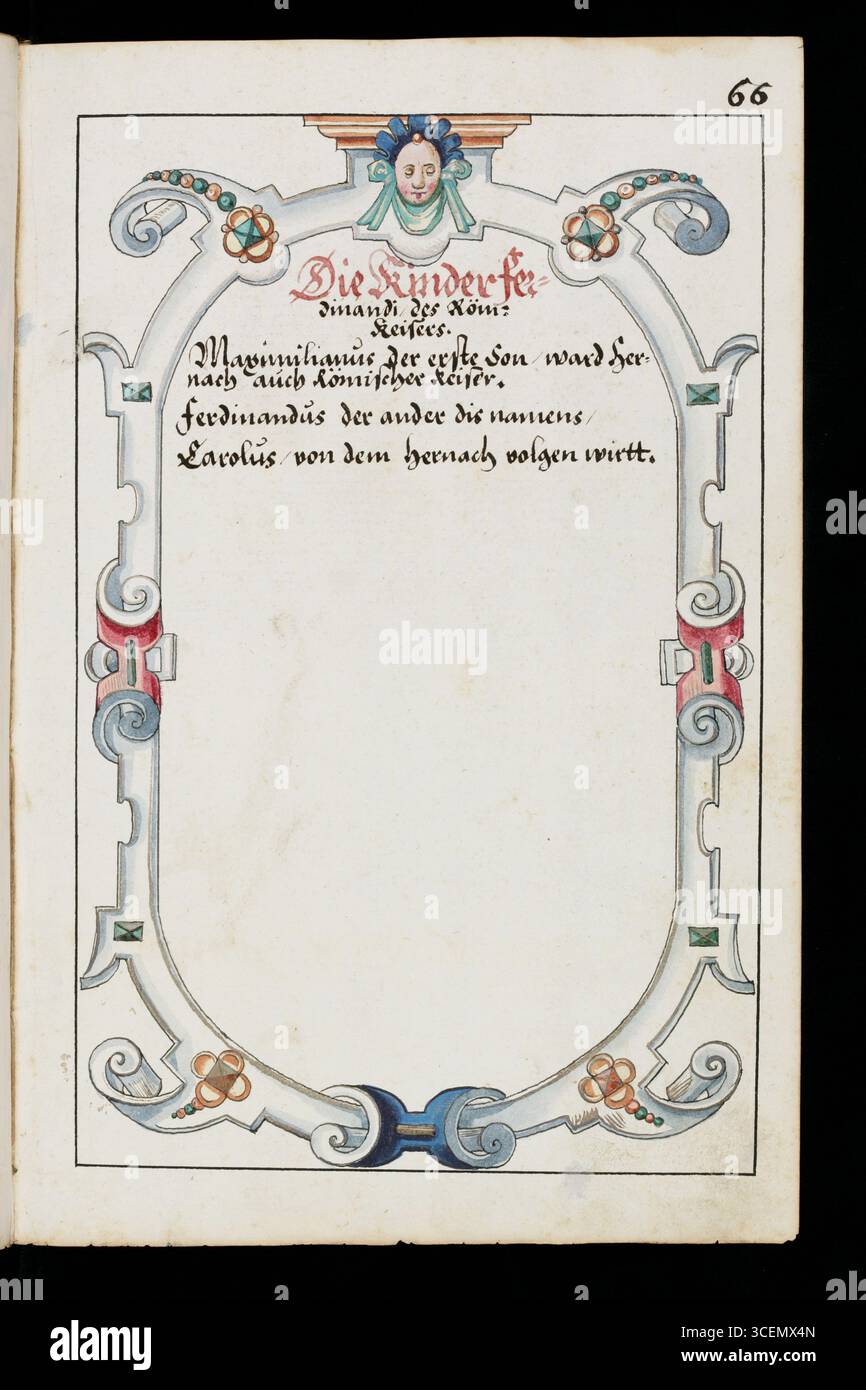 66
Die Kinder Fer=
dinandi / des Röm:
Keisers.
Maximilianus der erste Son / ward her=
nach auch Römischer Keiser.
Ferdinandus der ander dis namens /
Carolus / von dem hernach volgen wirtt.
alamy
alamy
alamy
Image ID: 3CEMX4N
www.alamy.com